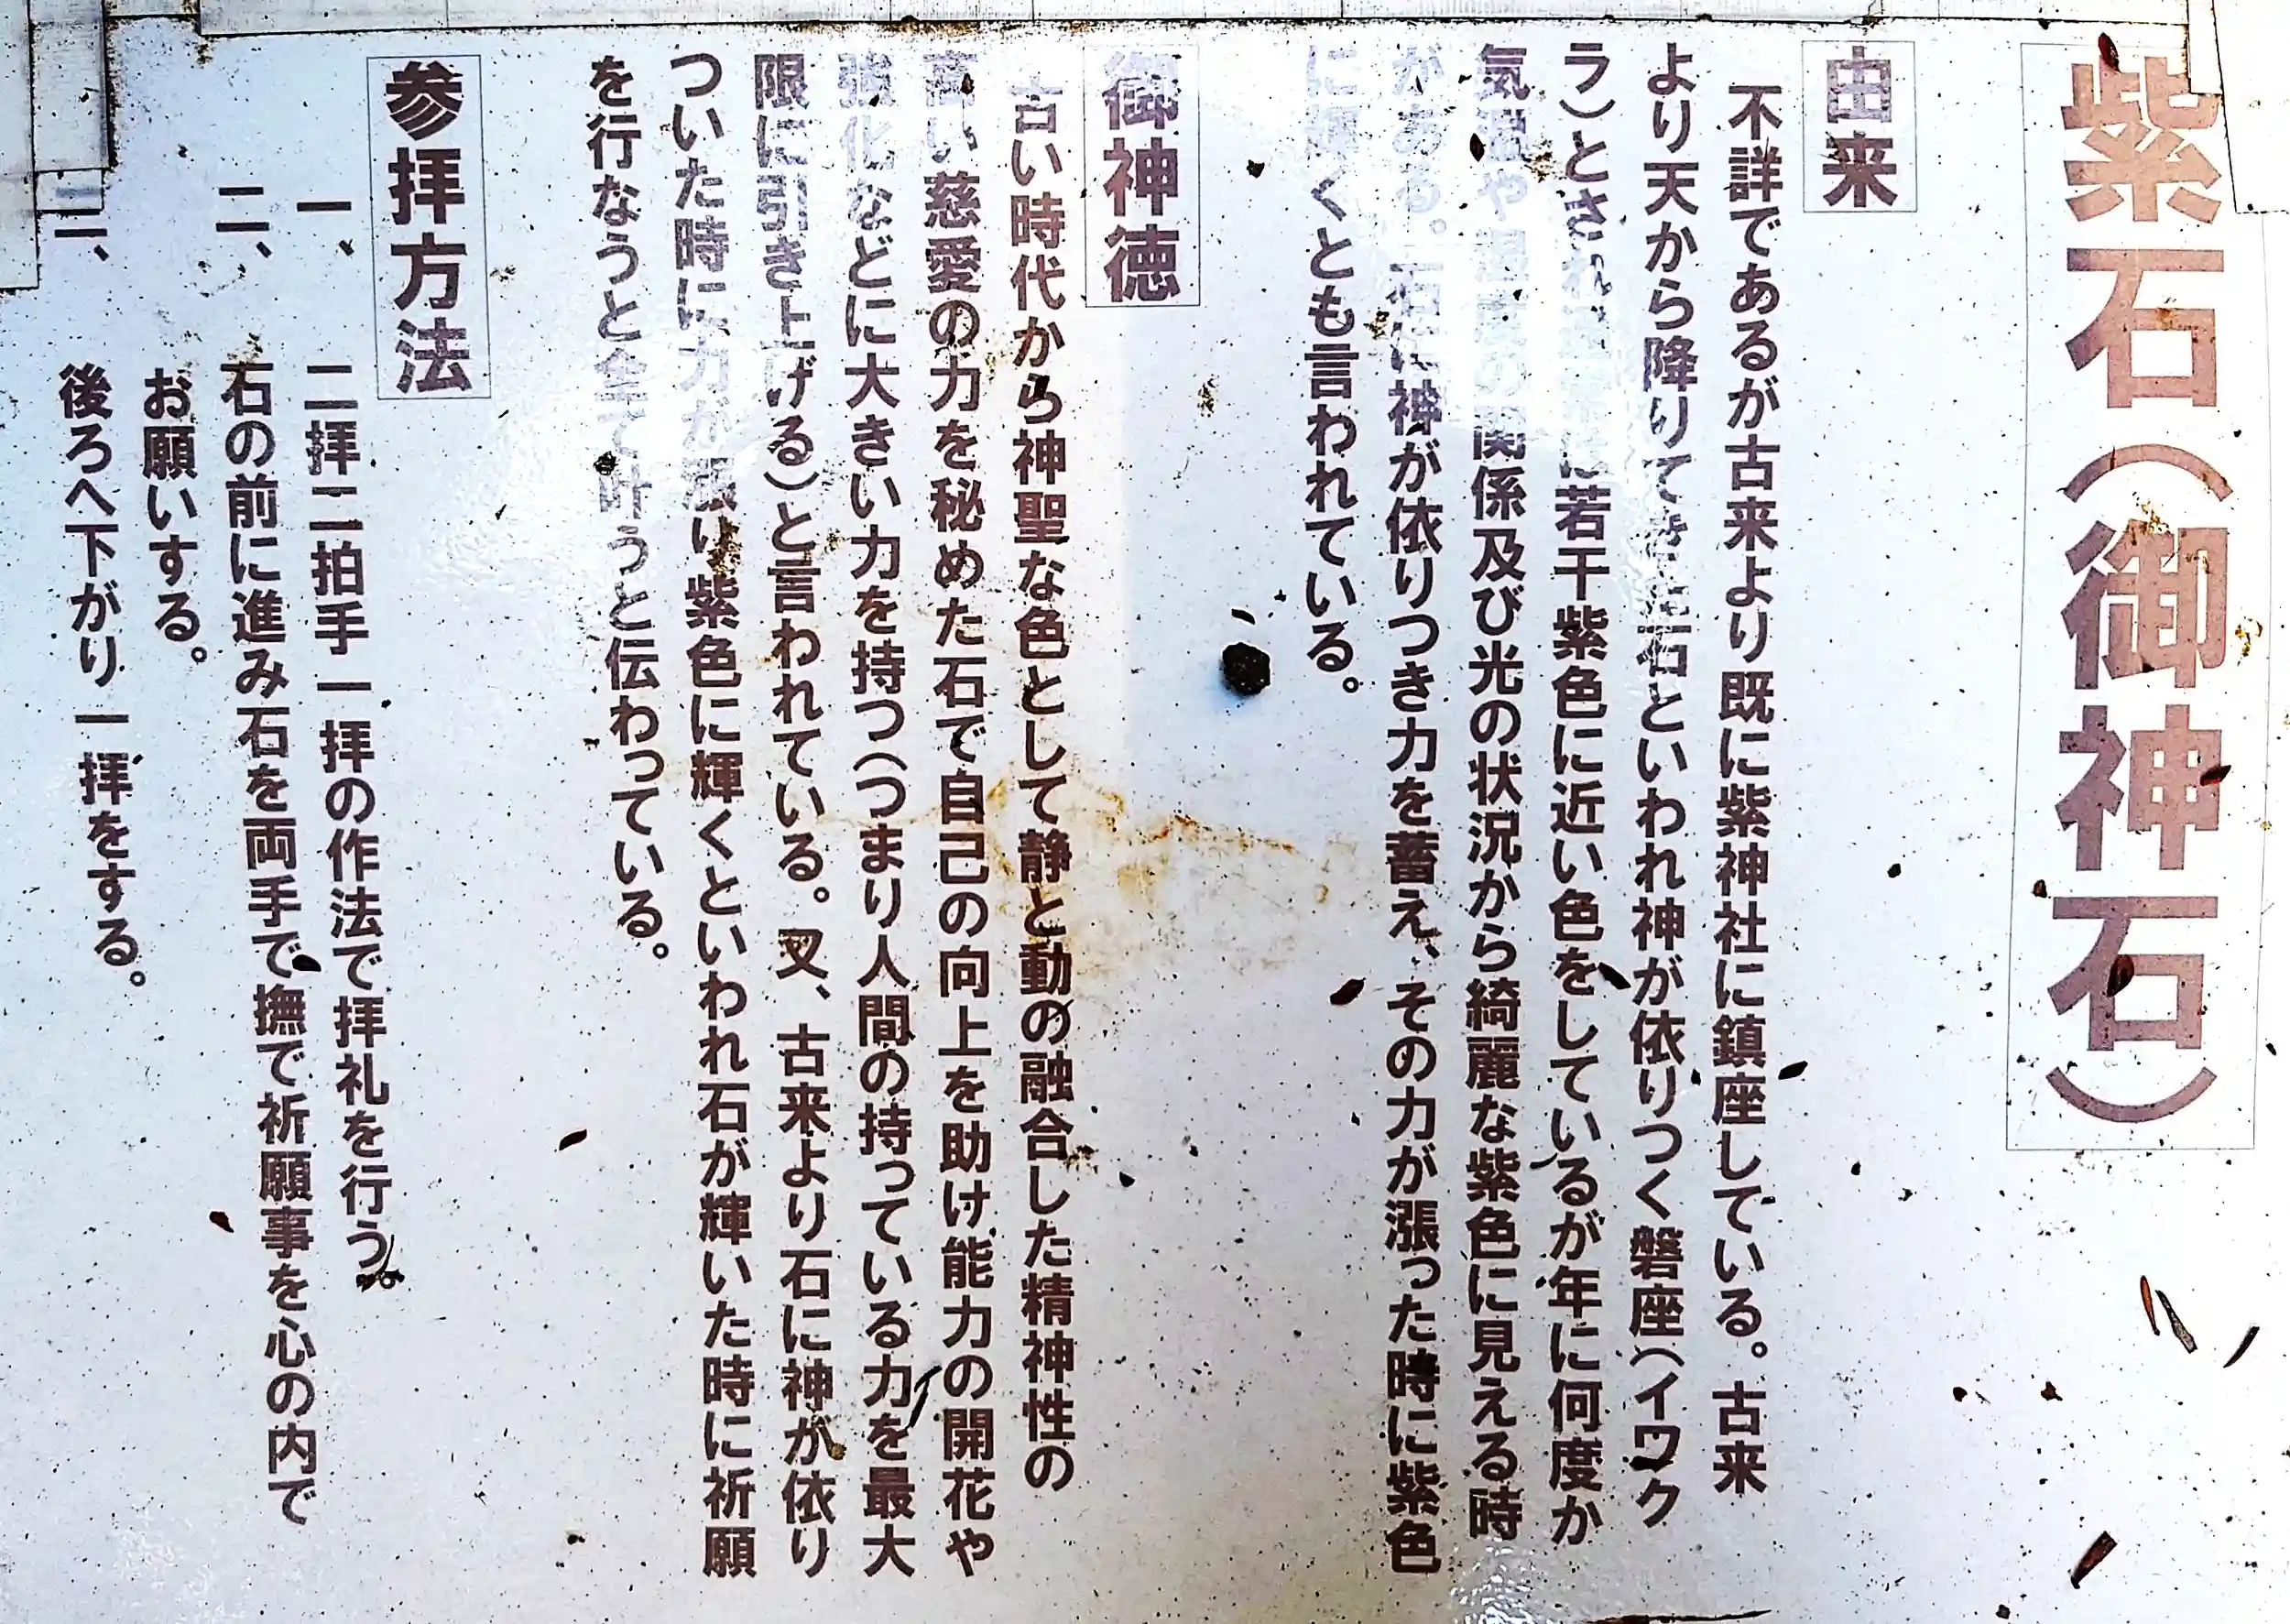 紫石(御神石)
由来
不詳であるが古来より既に紫神社に鎮座している。古来
より天から降りてきた石といわれ神が依りつく磐座(イワク
ラ)とされ 若干紫色に近い色をしているが年に何度か
気温や湿度の関係及び光の状況から綺麗な紫色に見える時
がある。石に神が依りつき力を蓄え、その力が漲った時に紫色
に輝くとも言われている。
御神徳
古い時代から神聖な色として静と動の融合した精神性の
高い慈愛の力を秘めた石で自己の向上を助け能力の開花や
強化などに大きい力を持つ(つまり人間の持っている力を最大
限に引き上げる)と言われている。又、古来より石に神が依り
ついた時に力が漲り紫色に輝くといわれ石が輝いた時に祈願
を行なうと全て叶うと伝わっている。
参拝方法
一、 二拝二拍手一拝の作法で拝礼を行う。
二、 石の前に進み石を両手で撫で祈願事を心の内で
お願いする。
三、 後ろへ下がり一拝をする。